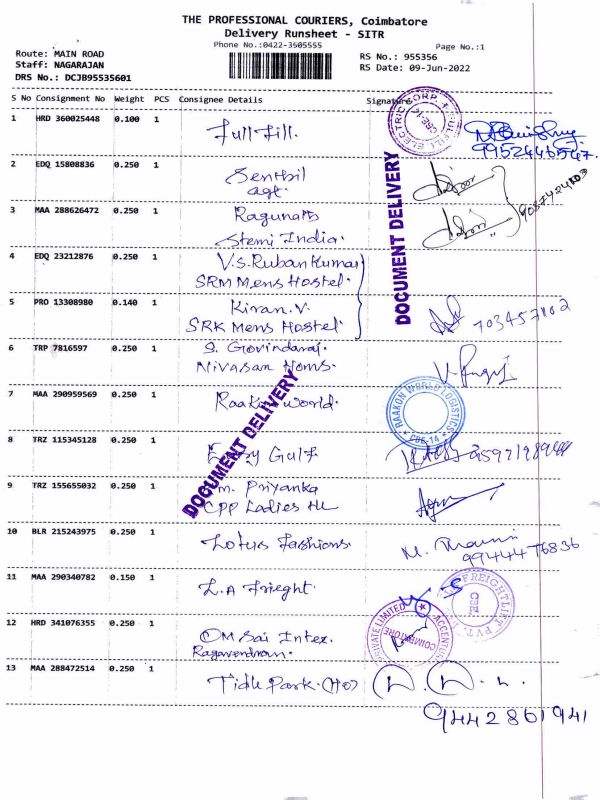 THE PROFESSIONAL COURIERS, Coimbatore
Delivery Runsheet - SITR
Phone No.:0422-3505555 Page No.:1
Route: MAIN ROAD RS No.: 955356
Staff: NAGARAJAN RS Date: 09-Jun-2022
DRS No.: DCJB95535601
S No Consignment No Weight PCS Consignee Details Signature
1 HRD 360025448 0.100 1 Full Fill.
9952446547.
2 EDQ 15808836 0.250 1 Senthil
agt.
3 MAA 288626472 0.250 1 Ragunath
Stemi India.
4 EDQ 23212876 0.250 1 V.S.Ruban Kumar
SRM Mens Hostel.
5 PRO 13308980 0.140 1 Kiran.V.
SRK Mens Hostel.
6 TRP 7816597 0.250 1 S. Govindaraj.
Nivasan Homs.
7 MAA 290959569 0.250 1 Raakon world.
RAAKON WORLD LOGISTICS
CBE-14
8 TRZ 115345128 0.250 1 Gulf
9 TRZ 155655032 0.250 1 m. Priyanka
CPP Ladies HL
10 BLR 215243975 0.250 1 Lotus Fashions.
11 MAA 290340782 0.150 1 L.A Frieght
12 HRD 341076355 0.250 1 OM Sai Intex.
Ragavendran.
COIMBATORE
13 MAA 288472514 0.250 1 Tidle Park.(Ho)
9442861941
DOCUMENT DELIVERY
DOCUMENT DELIVERY